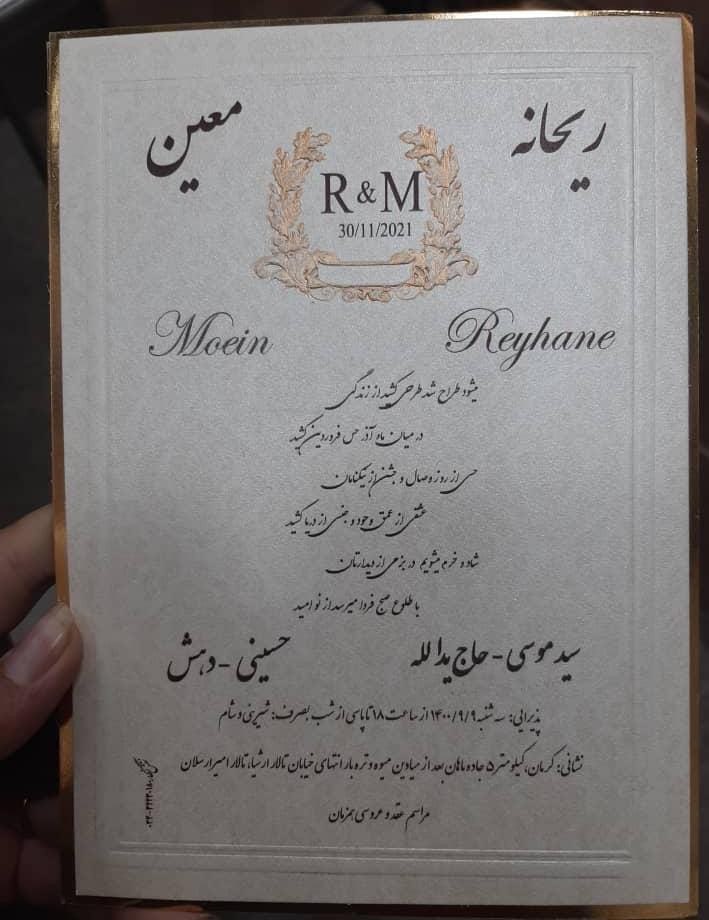 ریحانه
معین
R & M
30/11/2021
Moein Reyhane
میشود طراح شد طرحی کشید از زندگی
در میان ماه آذر حس فروردین کشید
حسی از روز وصال و جشنی از نیکنامان
عشقی از عمق وجود و جنسی از دریا کشید
شاد و خرم میشویم در بزمی از دیدارتان
با طلوع صبح فردا میرسد از نو امید
سید موسی - حاج یدالله
حسینی - دهش
پذیرایی: سه شنبه ۱۴۰۰/۹/۹ از ساعت ۱۸ تا پاسی از شب بصرف: شیرینی و شام
نشانی: کرمان، کیلومتر ۵ جاده ماهان بعد از میادین میوه و تره بار انتهای خیابان تالار ارشیا، تالار امیر ارسلان
مراسم عقد و عروسی همزمان